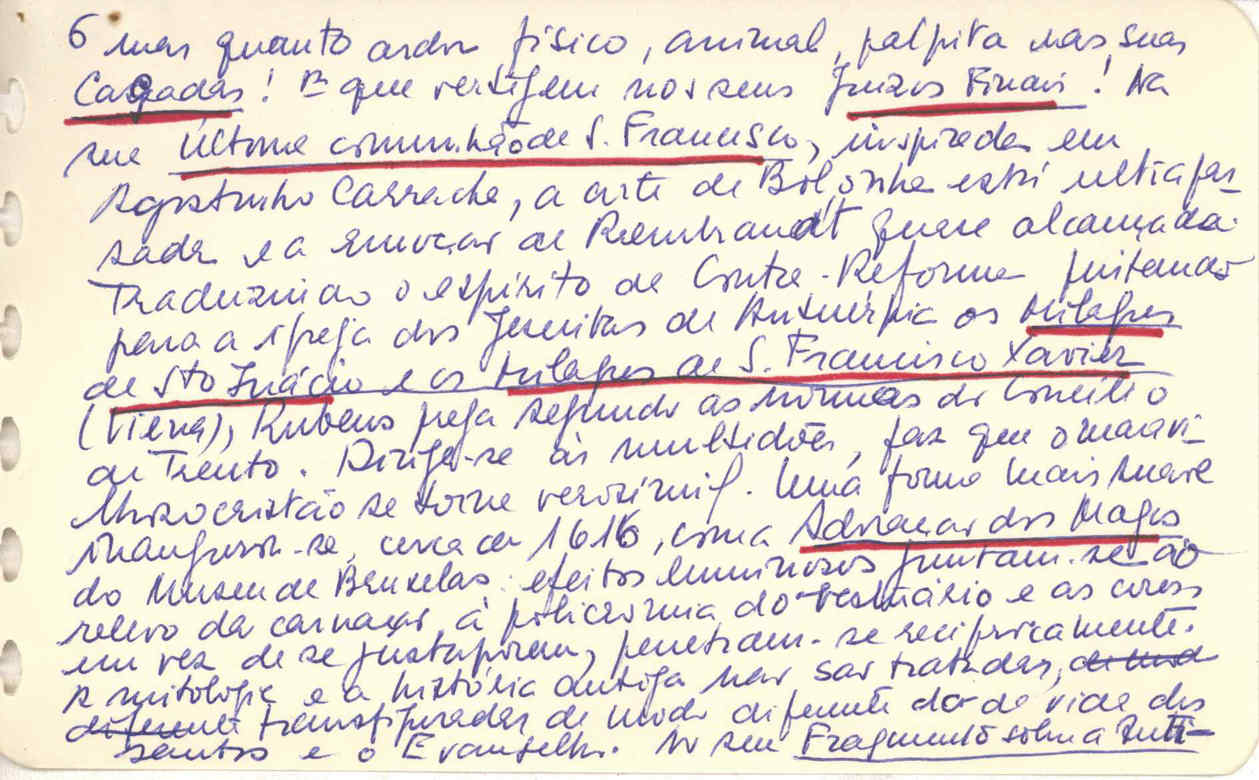 6 mas quanto ardor físico, animal, palpita nas suas
Caçadas! E que vertigem nos seus Juizos Finais! Na
sua Última comunhão de S. Francisco, inspirada em
Agostinho Carrache, a arte de Bolonha está ultrapas-
sada e a emoção de Rembrandt quase alcançada.
Traduzindo o espírito da Contra-Reforma pintando
para a igreja dos Jesuitas de Antuérpia os Milagres
de Sto Inácio e os Milagres de S. Francisco Xavier
(Viena), Rubens prega segundo as normas do Concílio
de Trento. Dirige-se às multidões, faz que o maravi-
lhoso cristão se torne verosímil. Uma forma mais suave
inaugura-se, cerca de 1616, com a Adoração dos Magos
do Museu de Bruxelas: efeitos luminosos juntam-se ao
relevo da carnação, à policromia do vestuário e as cores
em vez de se justaporem, penetram-se reciprocamente.
A mitologia e a história antiga não são tratadas, de modo
diferente transfiguradas de modo diferente do da vida dos
santos e o Evangelho. No seu Fragmento sobre a Anti-